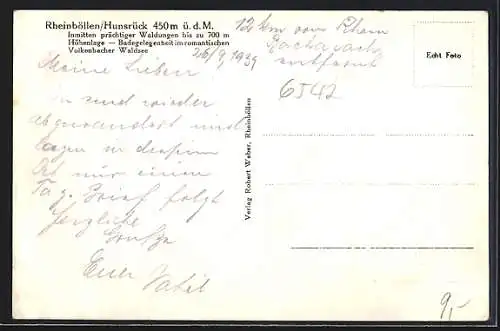 Rheinböllen/Hunsrück 450 m ü. d. M.
Inmitten prächtiger Waldungen bis zu 700 m
Höhenlage — Badegelegenheit im romantischen
Volkenbacher Waldsee
26/9. 1939
12 km vom Rhein
Bacharach
entfernt
6542
Echt Foto
Meine Lieben
sind wieder
abgewandert und
liegen in diesem
Ort nur einen
Tag. Brief folgt
Herzliche
Grüße
Euer
Verlag Robert Weber, Rheinböllen
9,-